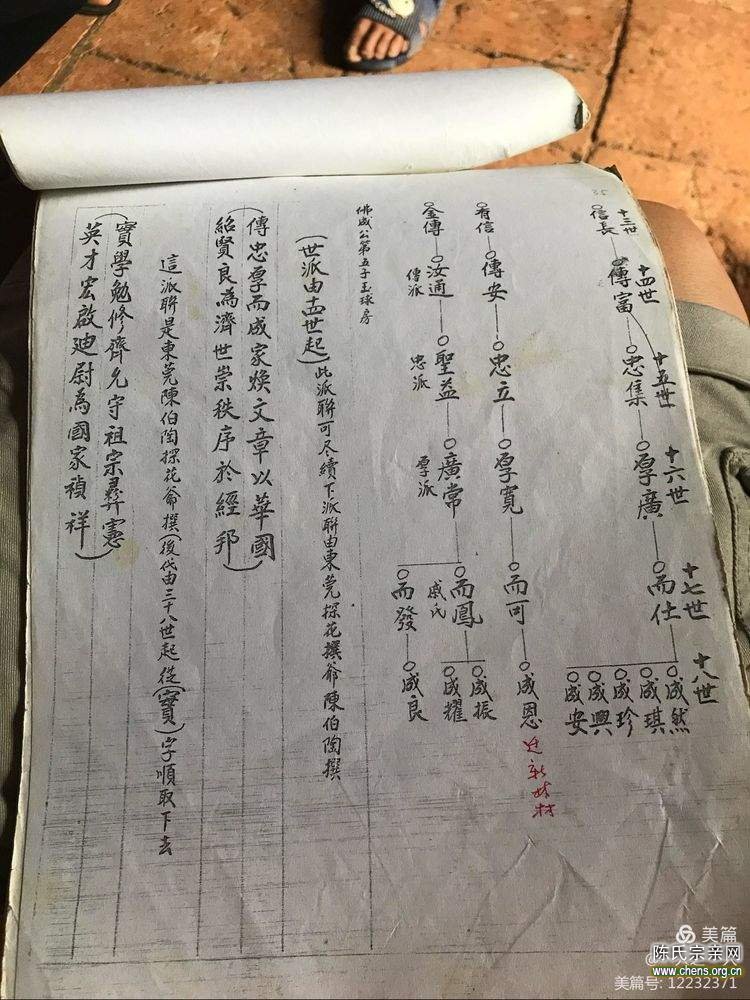 35
十三世 十四世 十五世 十六世 十七世 十八世
信長 傳富 忠集 厚廣 而仕 成然
成琪
成珍
成興
成安
有信 傳安 忠立 厚寬 而可 成恩
迁新
金傳 汝通 聖益 廣常 而鳳 成振
傳派 忠派 厚派 戚氏 成耀
而發 成良
佛成公第五子玉球房
(世派由十四世起)此派聯可尽續下派聯由東莞探花撰爺陳伯陶撰
(傳忠厚而成家煥文章以華國
紹賢良為濟世崇秩序於經邦)
這派聯是東莞陳伯陶探花爺撰(後代由三十八世起從(寶)字順取下去
(寶學勉修齊允守祖宗彝憲
英才宏啟迪尉為國家禎祥)
美篇
陈氏宗亲网
www.chens.org.cn
美篇号: 12232371